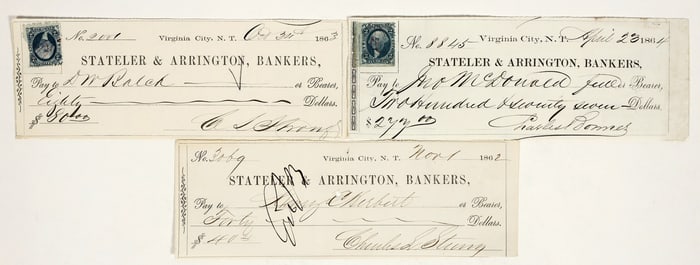 No. 2001 Virginia City, N. T. Oct 30th 1863
STATELER & ARRINGTON, BANKERS,
Pay to D W Balch or Bearer,
Eighty Dollars.
$80.00
C L Strong
No. 8845 Virginia City, N. T. April 23 1864
STATELER & ARRINGTON, BANKERS,
Pay to Jno McDonald or Bearer,
Two hundred & seventy seven Dollars.
$277.00
Charles Bonner
No. 3069 Virginia City, N. T. Nov 1 1862
STATELER & ARRINGTON, BANKERS,
Pay to or Bearer,
Forty Dollars.
$40
Charles L Strong